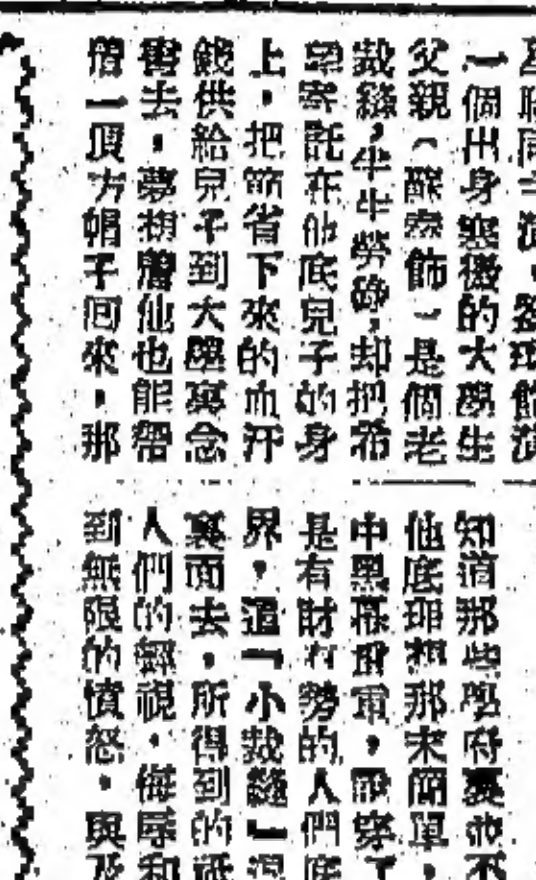 一個出身寒微的大學生
父親（醒秦飾）是個老
裁縫，半生勞碌，却把希
望寄託在他底兒子的身
上，把節省下來的血汗
錢供給兒子到大學裏念
書去，夢想着他也能帶
借一頂方帽子囘來，那
知道那些學府裏也不
他底理想那末簡單，
中黑幕重重，
是有財有勢的人們底
界，這「小裁縫」
裏面去，所得到的祇
人們的輕視，侮辱和
到無限的憤怒，與及